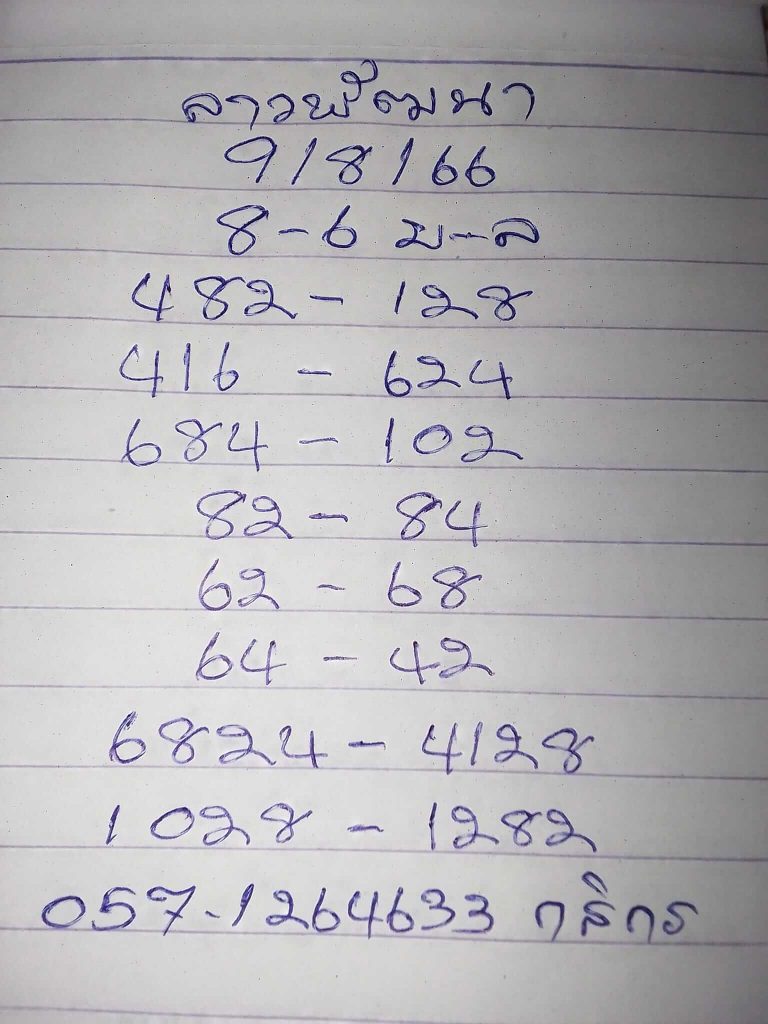 ลาวพัฒนา
9/8/66
8-6 บ-ล
482 - 128
416 - 624
684 - 102
82 - 84
62 - 68
64 - 42
6824 - 4128
1028 - 1282
057-1264633 กสิกร